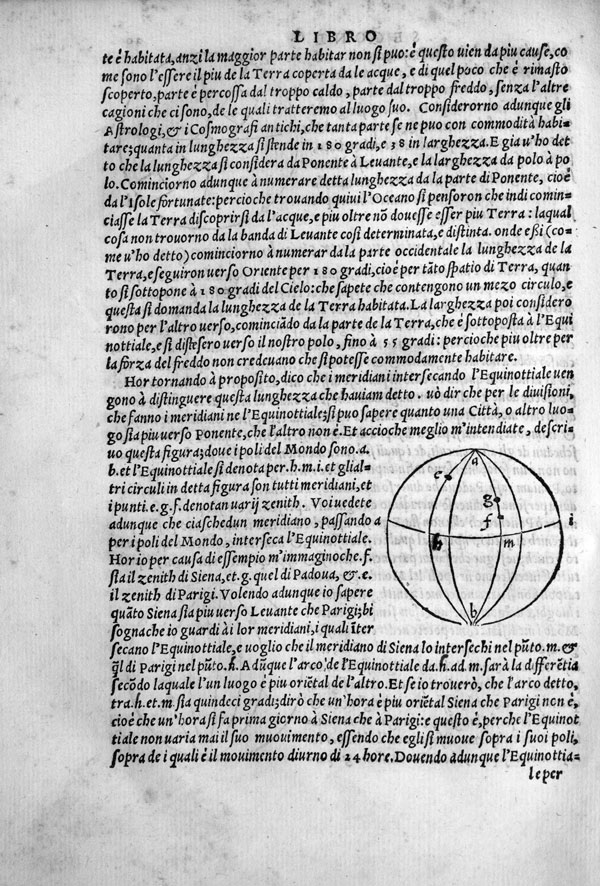 LIBRO
te é habitata, anzi la maggior parte habitar non si puo: é questo uien da piu cause, co
me sono l'essere il piu de la Terra coperta da le acque, e di quel poco che é rimasto
scoperto, parte é percossa dal troppo caldo, parte dal troppo freddo, senza l'altre
cagioni che ci sono, de le quali tratteremo al luogo suo. Considerorno adunque gli
Astrologi, & i Cosmografi antichi, che tanta parte se ne puo con commodità habi-
tare; quanta in lunghezza si stende in 180 gradi, e 58 in larghezza. E gia u'ho det
to che la lunghezza si considera da Ponente à Leuante, e la larghezza da polo à po
lo. Cominciorno adunque à numerare detta lunghezza da la parte di Ponente, cioé
da l'Isole fortunate: percioche trouando quiui l'Oceano si pensoron che indi comin-
ciasse la Terra à discoprirsi da l'acque, e piu oltre nō douesse esser piu Terra: laqual
cosa non trouorno da la banda di Leuante così determinata, e distinta. onde eßi (co-
me u'ho detto) cominciorno à numerar da la parte occidentale la lunghezza de la
Terra, e seguiron uerso Oriente per 180 gradi, cioé per tāto spatio di Terra, quan
to si sottopone à 180 gradi del Cielo: che sapete che contengono un mezo circulo, e
questa si domanda la lunghezza de la Terra habitata. La larghezza poi considero
rono per l'altro uerso, cominciādo da la parte de la Terra, che é sottoposta à l'Equi
nottiale, e si distesero uerso il nostro polo, fino à 55 gradi: percioche piu oltre per
la forza del freddo non credeuano che si potesse commodamente habitare.
Hor tornando à proposito, dico che i meridiani intersecando l'Equinottiale uen
gono à distinguere questa lunghezza che hauiam detto. uò dir che per le diuisioni,
che fanno i meridiani ne l'Equinottiale; si puo sapere quanto una Città, o altro luo-
go sia piu uerso Ponente, che l'altro non é. Et accioche meglio m'intendiate, descri-
uo questa figura; doue i poli del Mondo sono. a.
b. et l'Equinottiale si denota per. h. m. i. et gli al-
tri circuli in detta figura son tutti meridiani, et
i punti. e. g. f. denotan uarij zenith. Voi uedete
adunque che ciaschedun meridiano, passando a
per i poli del Mondo, interseca l'Equinottiale.
Hor io per causa di essempio m'immagino che. f.
sia il zenith di Siena, et. g. quel di Padoua, &. e.
il zenith di Parigi. Volendo adunque io sapere
quāto Siena sia piu uerso Leuante che Parigi; bi
sogna che io guardi à i lor meridiani, i quali īter
secano l'Equinottiale, e uoglio che il meridiano di Siena lo intersechi nel pūto. m. &
q̄l di Parigi nel pūto. h. Adūque l'arco de l'Equinottiale da. h. ad. m. sarà la differētia
secōdo laquale l'un luogo é piu oriētal de l'altro. Et se io trouerò, che l'arco detto,
tra. h. et. m. sia quindeci gradi; dirò che un'hora é piu oriētal Siena che Parigi non é,
cioé che un'hora si fa prima giorno à Siena che à Parigi: e questo é, perche l'Equinot
tiale non uaria mai il suo muouimento, essendo che egli si muoue sopra i suoi poli,
sopra de i quali é il mouimento diurno di 24 hore. Douendo adunque l'Equinottia-
le per
a
e
g
f
i
h
m
b